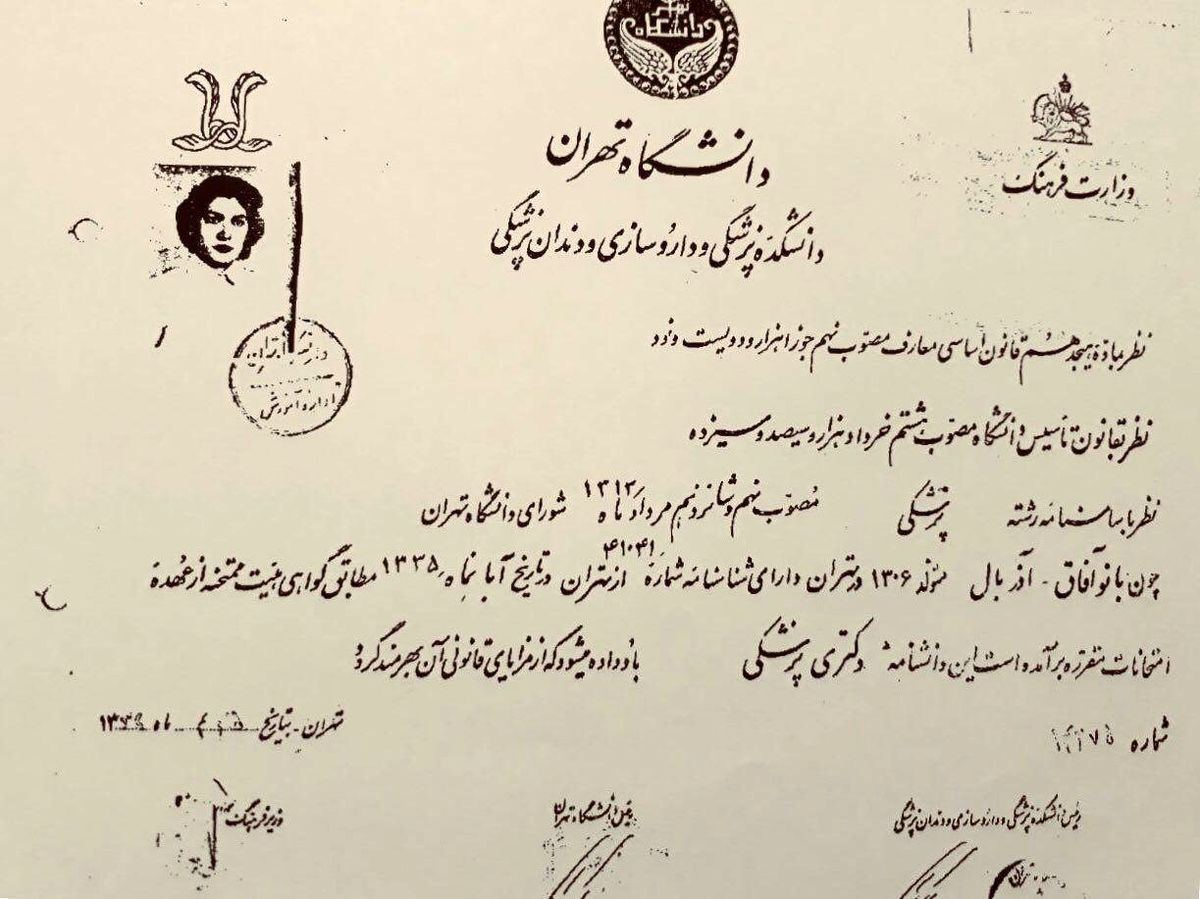 دانشگاه تهران
وزارت فرهنگ
دانشگاه تهران
دانشکده پزشکی و داروسازی و دندان پزشکی
اداره آموزش
نظر بماده هیجدهم قانون اساسی معارف مصوب نهم جوزا هزار و دویست و نود
نظر بقانون تأسیس دانشگاه مصوب هشتم خرداد هزار و سیصد و سیزده
نظر باساسنامه رشته پزشکی مصوب نهم و شانزدهم مرداد ماه ۱۳۱۳ شورای دانشگاه تهران
چون بانو آفاق - آذر بال متولد ۱۳۰۶ در تهران دارای شناسنامه شماره ۴۱۰۴۱ از تهران در تاریخ آبانماه ۱۳۳۵ مطابق گواهی هیئت ممتحنه از عهده
امتحانات مقرره برآمده است این دانشنامه دکتری پزشکی باو داده میشود که از مزایای قانونی آن بهره‌مند گردد
شماره
تهران - بتاریخ ماه
رئیس دانشکده پزشکی و داروسازی و دندان پزشکی
رئیس دانشگاه تهران
وزیر فرهنگ